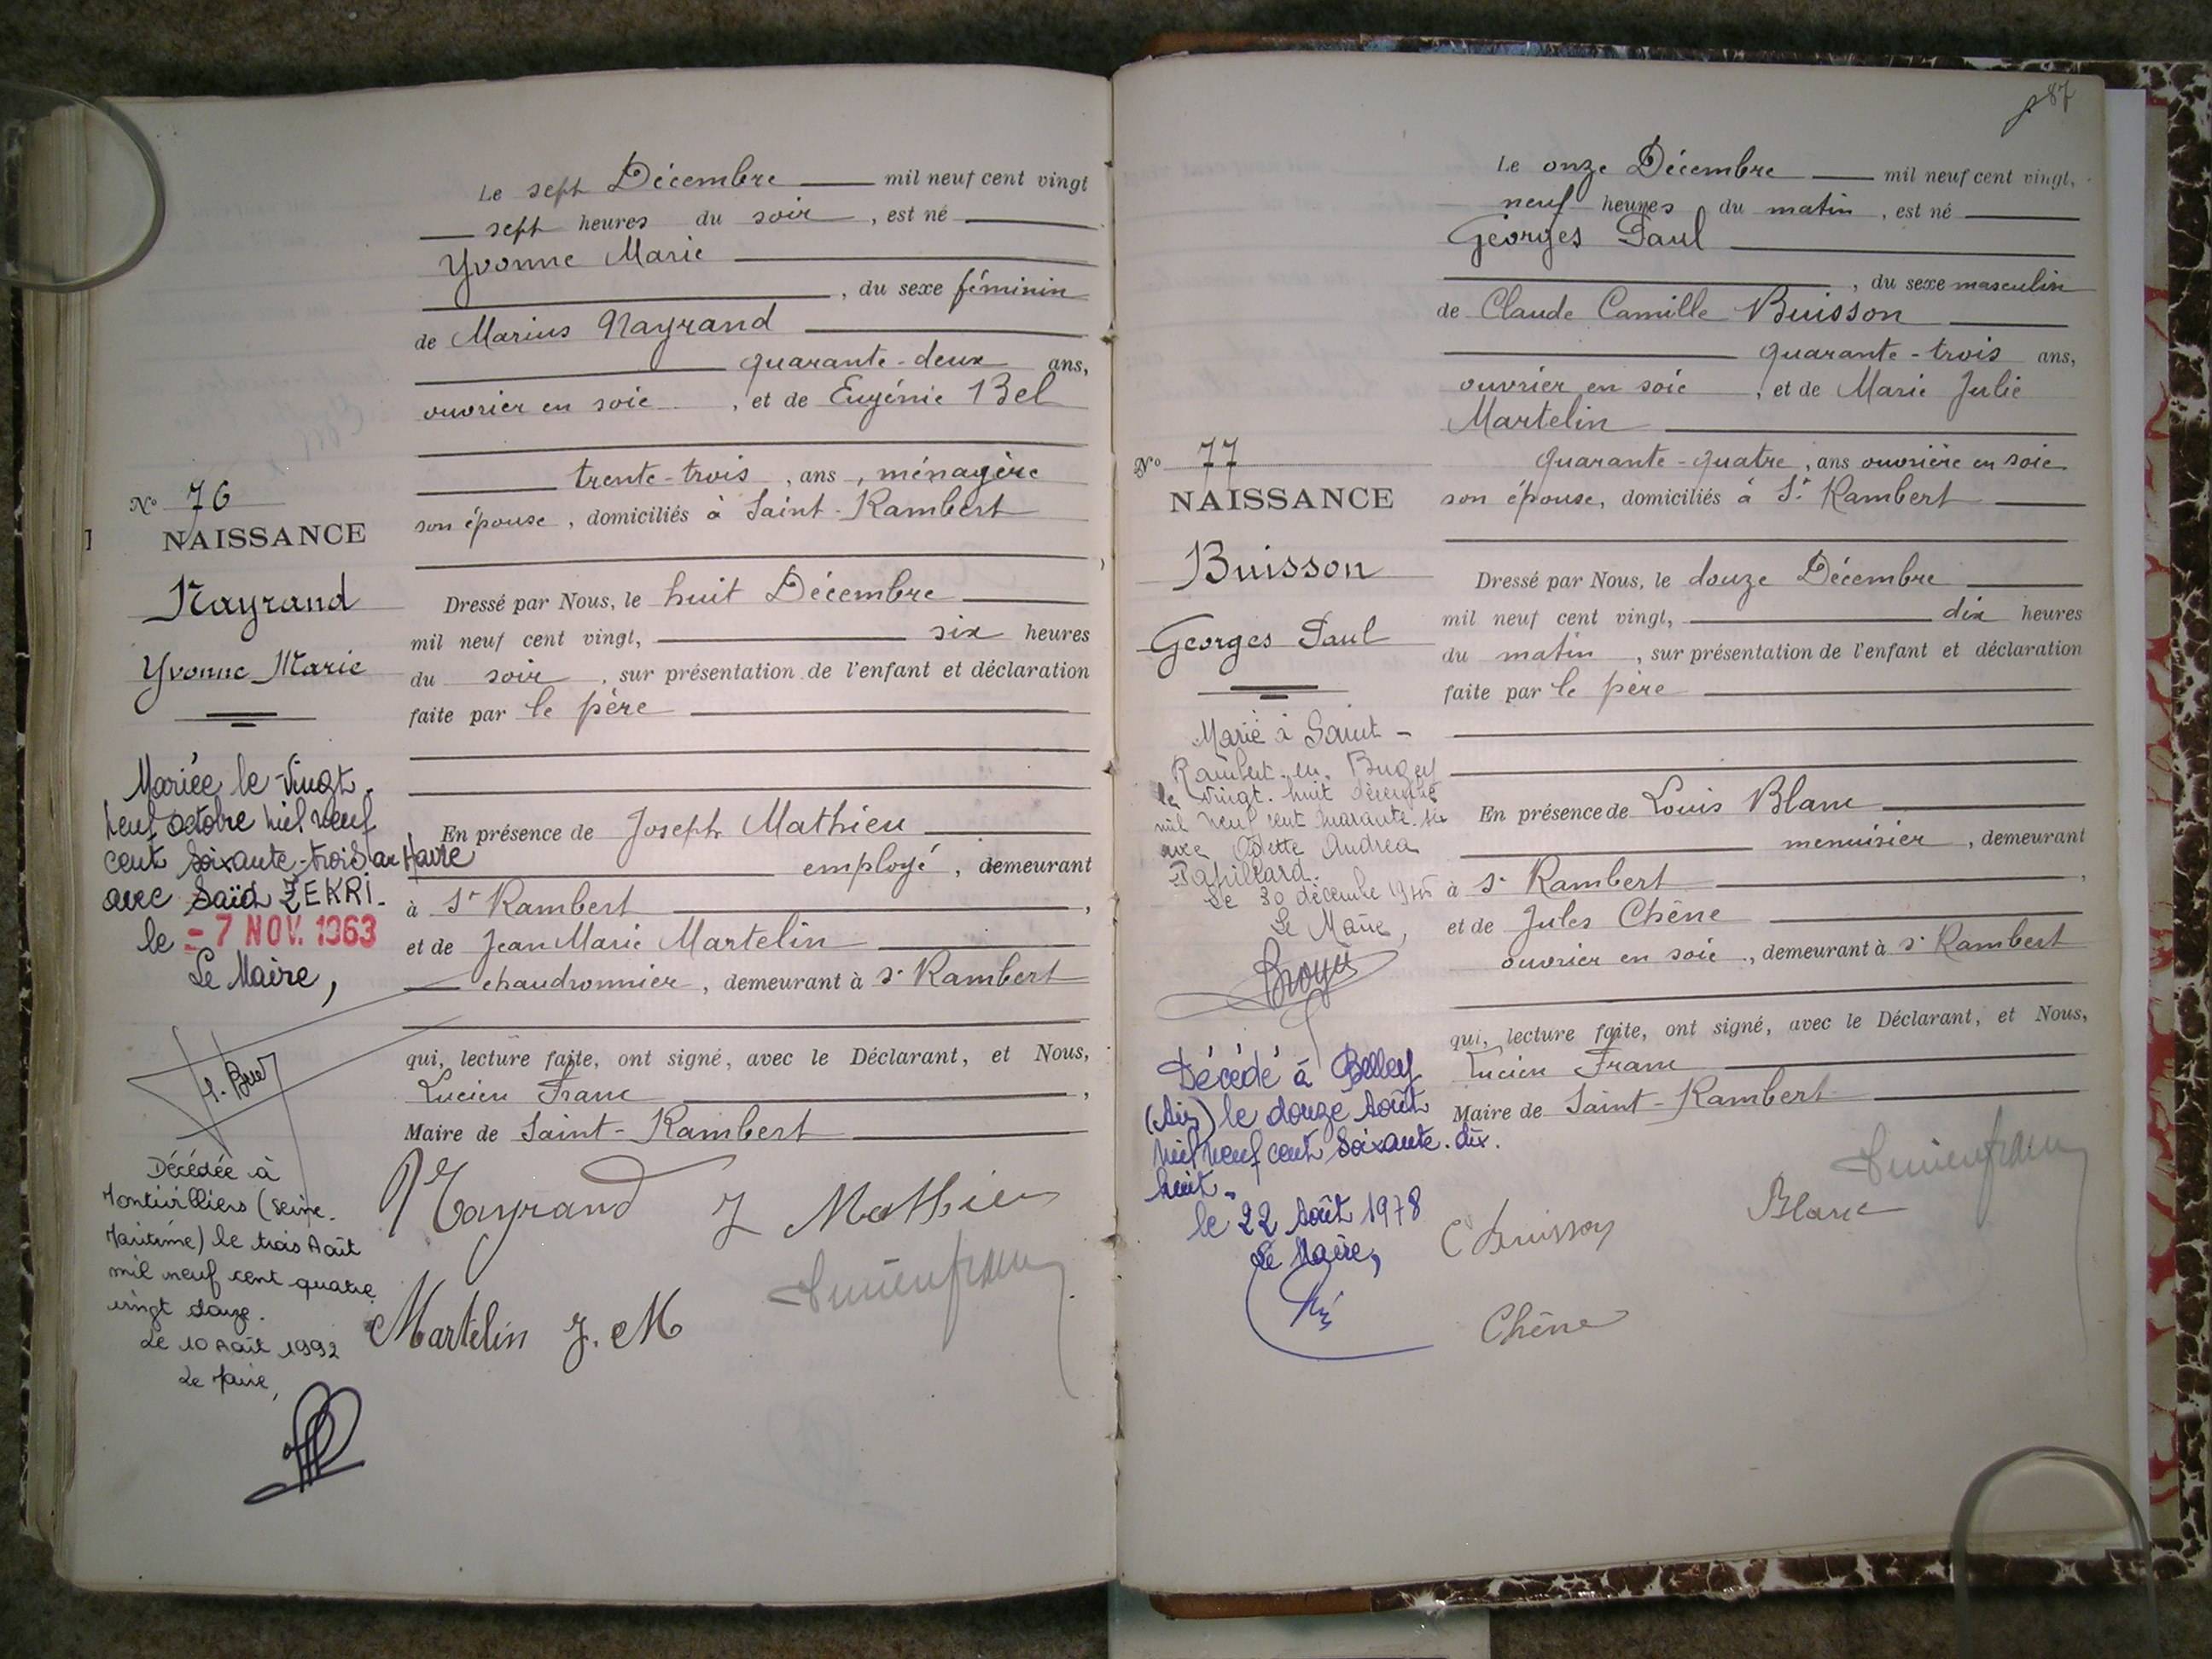 Le sept Décembre mil neuf cent vingt
sept heures du soir, est né
Yvonne Marie
, du sexe féminin
de Marius Nayrand
quarante-deux ans,
ouvrier en soie, et de Eugénie Bel
trente-trois, ans, ménagère
son épouse, domiciliés à Saint-Rambert
,
Dressé par Nous, le huit Décembre
mil neuf cent vingt, six heures
du soir, sur présentation de l'enfant et déclaration
faite par le père
En présence de Joseph Mathieu
employé, demeurant
à St Rambert,
et de Jean Marie Martelin
chaudronnier, demeurant à St Rambert
qui, lecture faite, ont signé, avec le Déclarant, et Nous,
Lucien Franc,
Maire de Saint-Rambert
Nayrand J Mathieu
Martelin J. M
No 76
NAISSANCE
Nayrand
Yvonne Marie
Mariée le vingt-
neuf octobre mil neuf
cent soixante-trois au Havre
avec Saïd ZEKRI.
le - 7 NOV. 1963
Le Maire,
Décédée à
Montivilliers (Seine-
Maritime) le trois Août
mil neuf cent quatre
vingt douze.
Le 10 Août 1992
Le Maire,
87
Le onze Décembre mil neuf cent vingt,
neuf heures du matin, est né
Georges Paul
, du sexe masculin
de Claude Camille Buisson
quarante-trois ans,
ouvrier en soie, et de Marie Julie
Martelin
quarante-quatre, ans ouvrière en soie
son épouse, domiciliés à St Rambert
Dressé par Nous, le douze Décembre
mil neuf cent vingt, dix heures
du matin, sur présentation de l'enfant et déclaration
faite par le père
En présence de Louis Blanc
menuisier, demeurant
à St Rambert,
et de Jules Chêne
ouvrier en soie, demeurant à St Rambert
qui, lecture faite, ont signé, avec le Déclarant, et Nous,
Lucien Franc
Maire de Saint-Rambert
Blanc
C Buisson
Chêne
No 77
NAISSANCE
Buisson
Georges Paul
Marié à Saint-
Rambert-en-Bugey
le vingt-huit décembre
mil neuf cent quarante
avec Odette Andréa
Le 30 décembre
Le Maire,
Décédé à Belley
(Ain) le douze Août
mil neuf cent soixante-dix-
huit.
le 22 Août 1978
Le Maire,